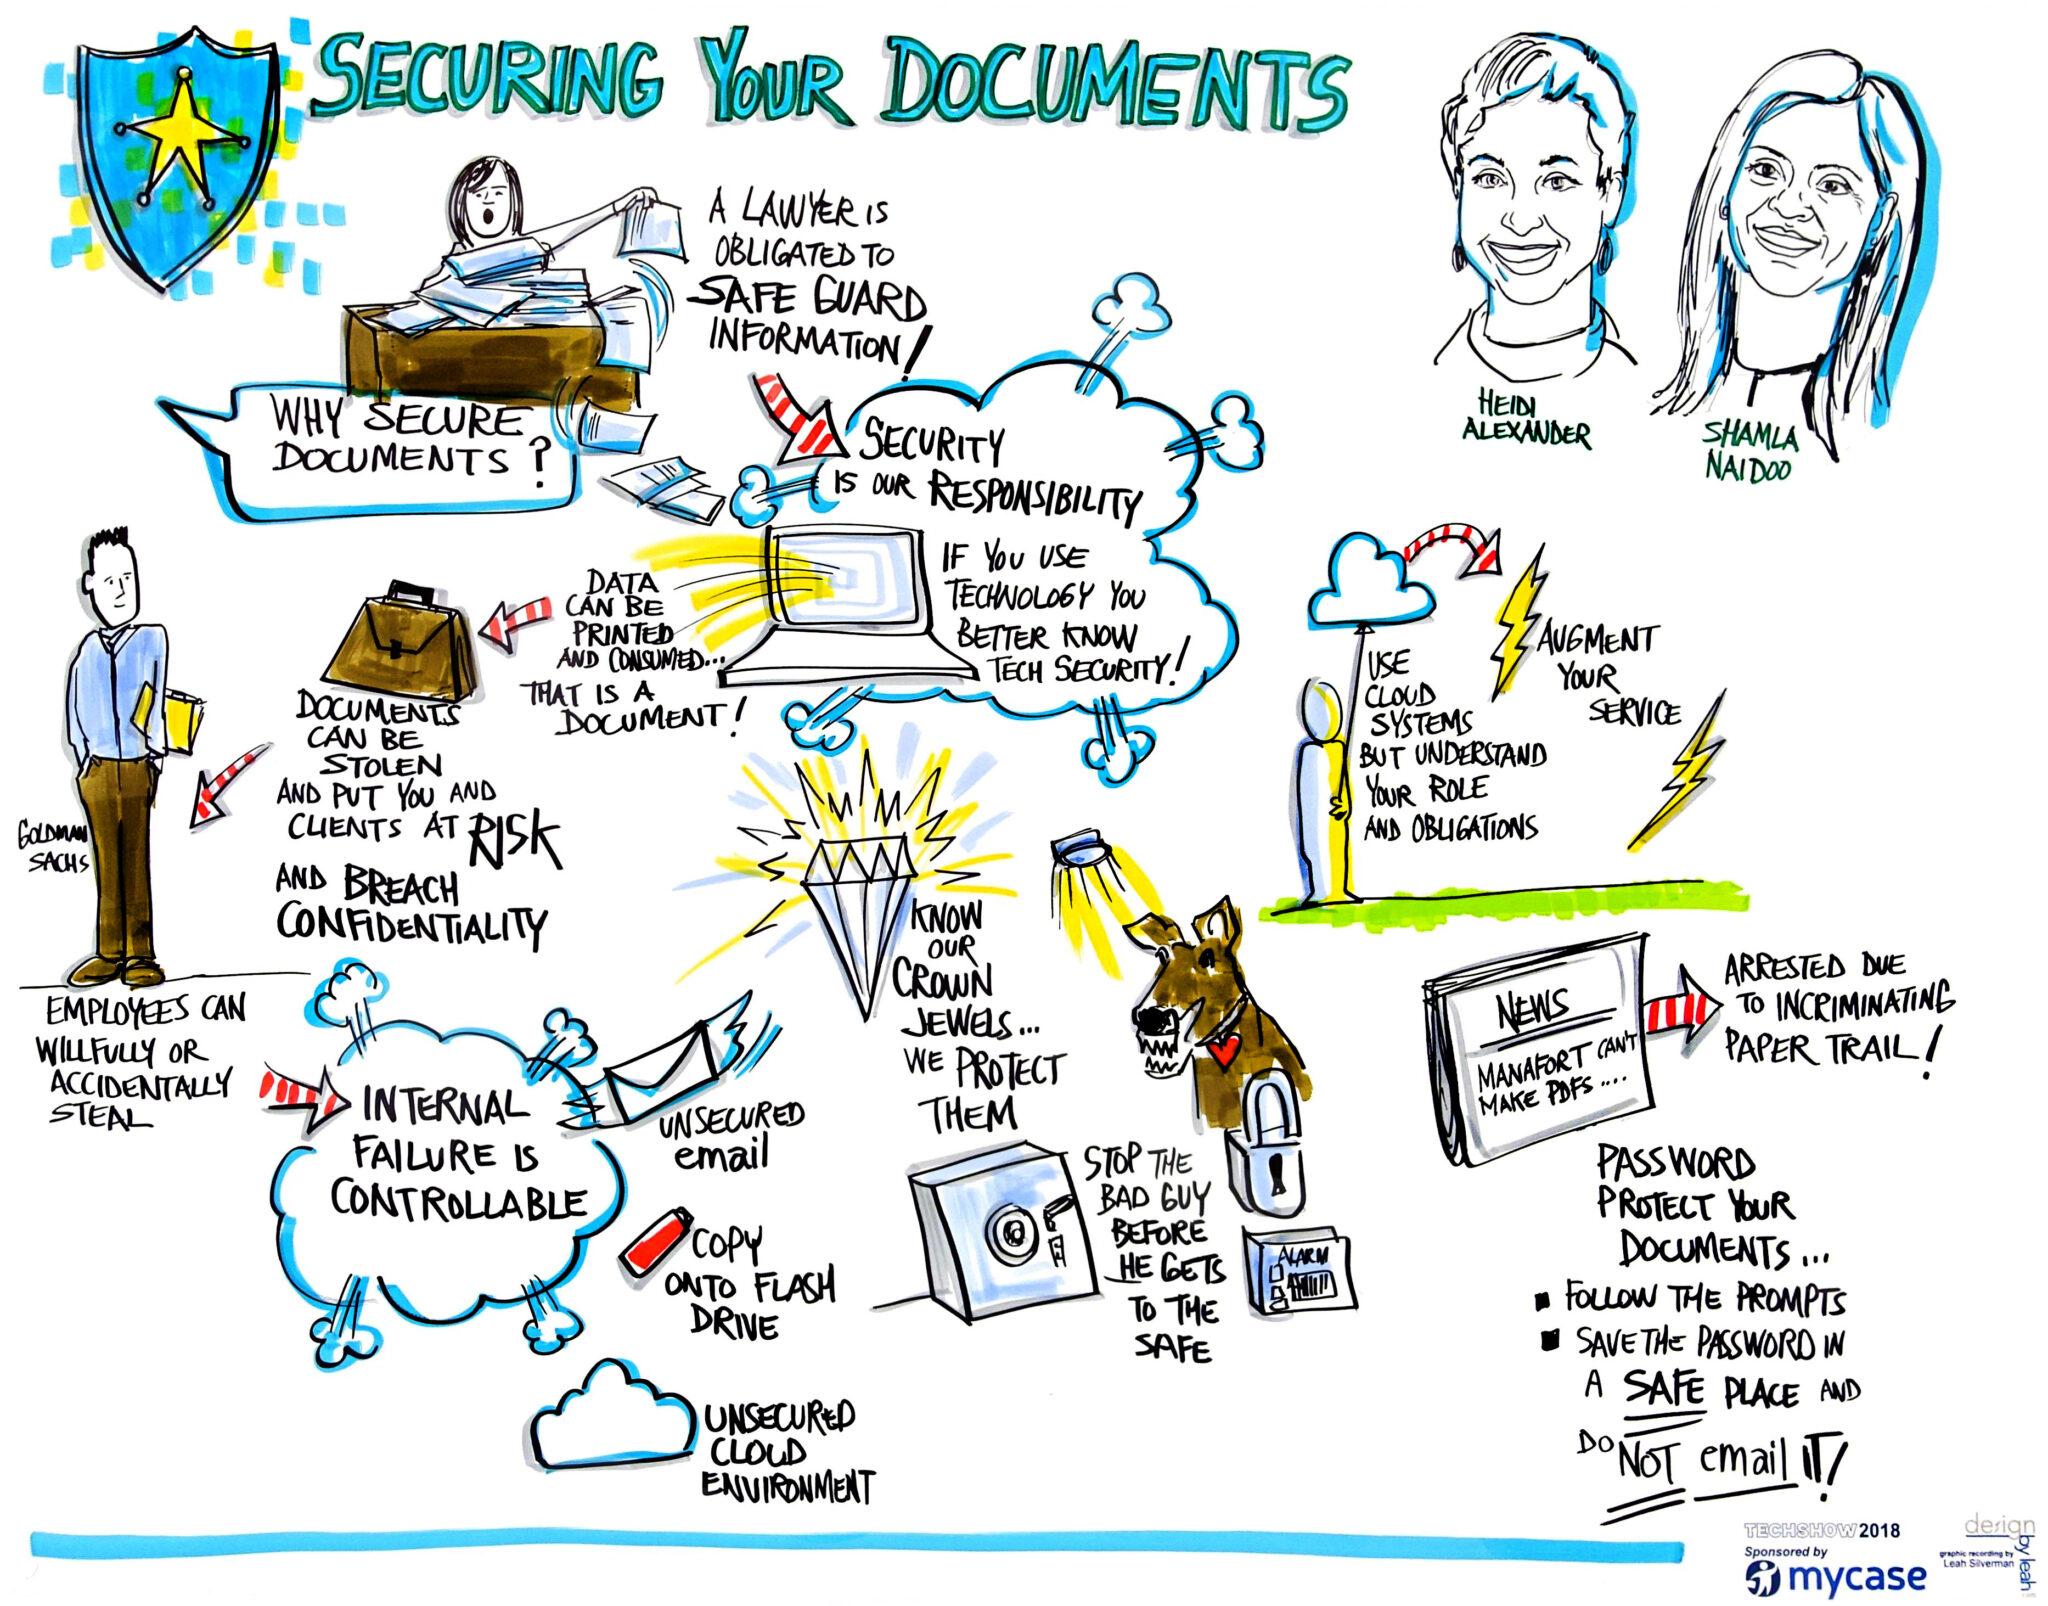 SECURING YOUR DOCUMENTS
A LAWYER IS
OBLIGATED TO
SAFE GUARD
INFORMATION!
WHY SECURE
DOCUMENTS?
HEIDI
ALEXANDER
SHAMLA
NAIDOO
SECURITY
IS OUR RESPONSIBILITY
IF YOU USE
TECHNOLOGY YOU
BETTER KNOW
TECH SECURITY!
DATA
CAN BE
PRINTED
AND CONSUMED...
THAT IS A
DOCUMENT!
DOCUMENTS
CAN BE
STOLEN
AND PUT YOU AND
CLIENTS AT RISK
AND BREACH
CONFIDENTIALITY
GOLDMAN
SACHS
EMPLOYEES CAN
WILLFULLY OR
ACCIDENTALLY
STEAL
INTERNAL
FAILURE IS
CONTROLLABLE
UNSECURED
email
COPY
ONTO FLASH
DRIVE
UNSECURED
CLOUD
ENVIRONMENT
KNOW
OUR
CROWN
JEWELS...
WE PROTECT
THEM
STOP THE
BAD GUY
BEFORE
HE GETS
TO THE
SAFE
ALARM
USE
CLOUD
SYSTEMS
BUT UNDERSTAND
YOUR ROLE
AND OBLIGATIONS
AUGMENT
YOUR
SERVICE
NEWS
MANAFORT CAN'T
MAKE PDFS....
ARRESTED DUE
TO INCRIMINATING
PAPER TRAIL!
PASSWORD
PROTECT YOUR
DOCUMENTS...
■ FOLLOW THE PROMPTS
■ SAVE THE PASSWORD IN
A SAFE PLACE AND
DO NOT email IT!
TECHSHOW 2018
Sponsored by
mycase
design
by leah
graphic recording by
Leah Silverman